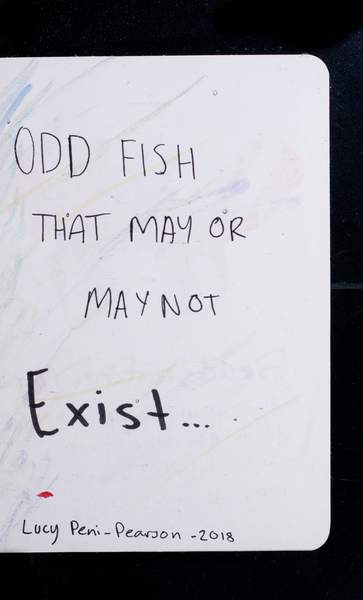 ODD FISH
THAT MAY OR
MAY NOT
Exist...
Lucy Peni-Pearson -2018